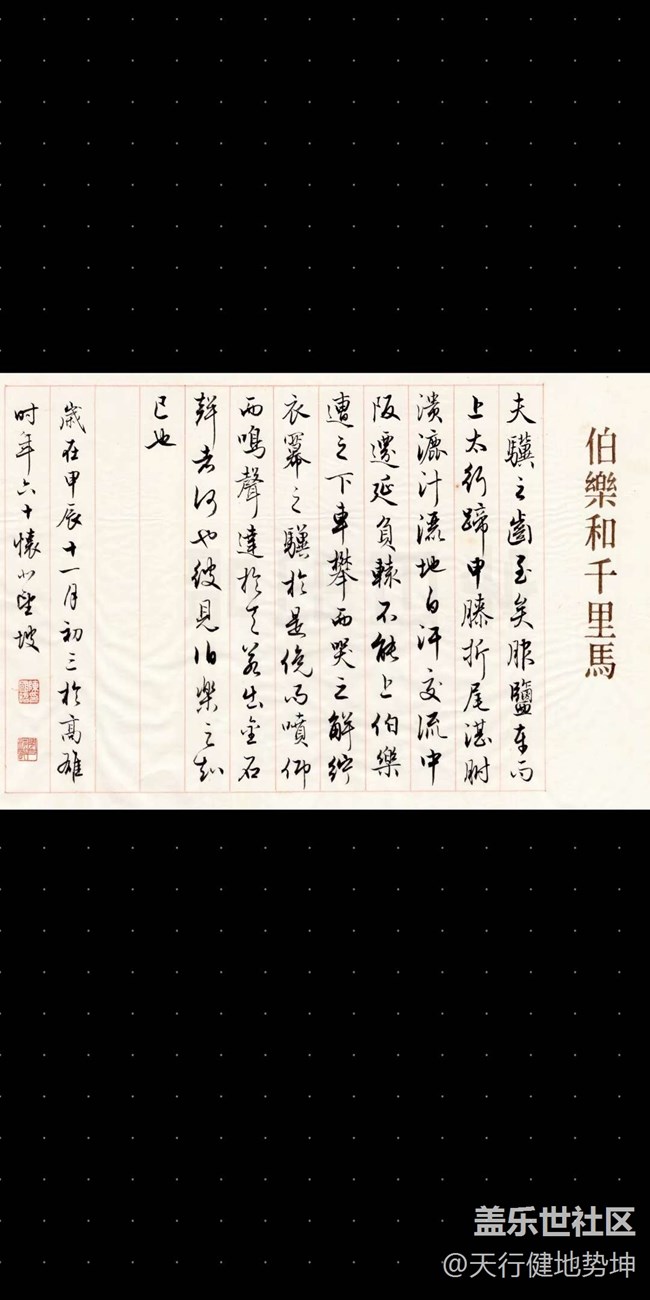 伯樂和千里馬
夫驥之齒至矣服鹽車而
上太行蹄申膝折尾湛胕
潰漉汁灑地白汗交流中
阪遷延負轅不能上伯樂
遭之下車攀而哭之解紵
衣冪之驥於是俛而噴仰
而鳴聲達於天若出金石
聲者何也彼見伯樂之知
己也
歲在甲辰十一月初三於高雄
时年六十懷小望坡
盖乐世社区
@天行健地势坤